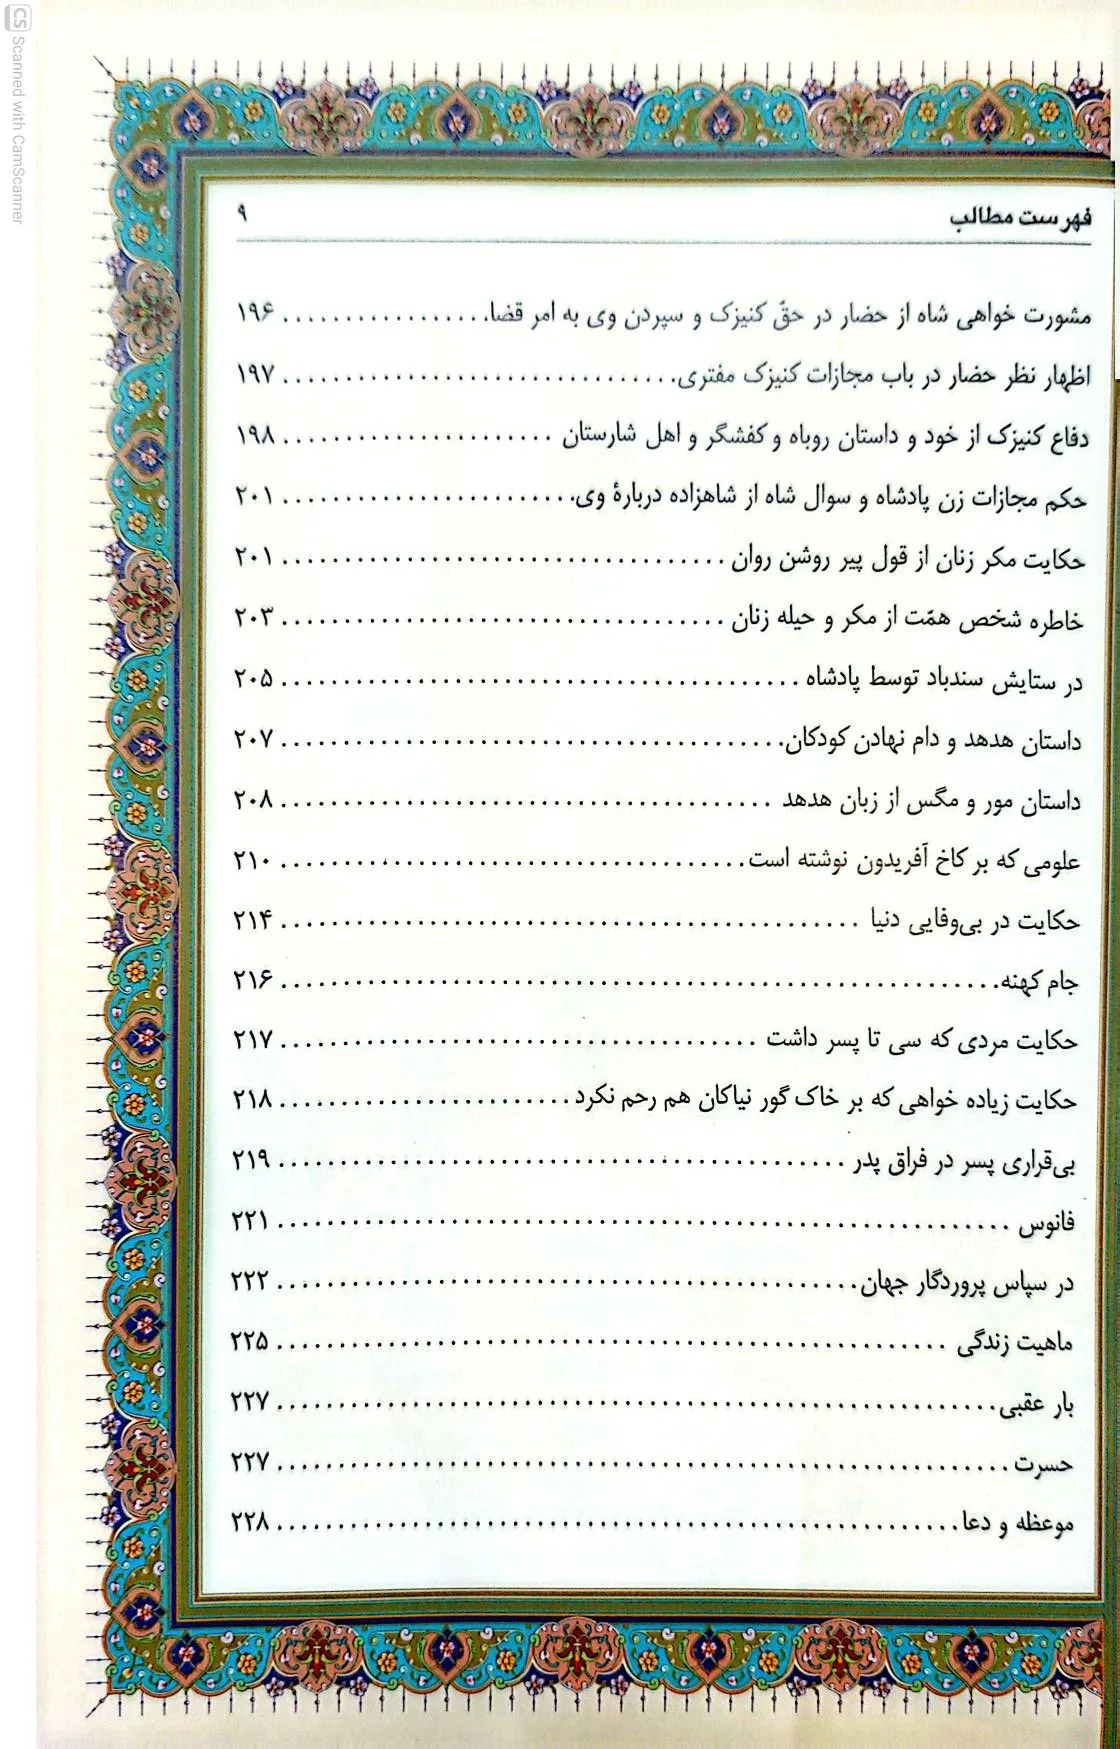 فهرست مطالب ۹
مشورت خواهی شاه از حضار در حقّ کنیزک و سپردن وی به امر قضا.................. ۱۹۶
اظهار نظر حضار در باب مجازات کنیزک مفتری................................ ۱۹۷
دفاع کنیزک از خود و داستان روباه و کفشگر و اهل شارستان ...................... ۱۹۸
حکم مجازات زن پادشاه و سوال شاه از شاهزاده دربارهٔ وی........................ ۲۰۱
حکایت مکر زنان از قول پیر روشن روان .................................... ۲۰۱
خاطره شخص همّت از مکر و حیله زنان .................................... ۲۰۳
در ستایش سندباد توسط پادشاه .......................................... ۲۰۵
داستان هدهد و دام نهادن کودکان........................................ ۲۰۷
داستان مور و مگس از زبان هدهد ........................................ ۲۰۸
علومی که بر کاخ آفریدون نوشته است...................................... ۲۱۰
حکایت در بی‌وفایی دنیا ............................................... ۲۱۴
جام کهنه.......................................................... ۲۱۶
حکایت مردی که سی تا پسر داشت ....................................... ۲۱۷
حکایت زیاده خواهی که بر خاک گور نیاکان هم رحم نکرد........................ ۲۱۸
بی‌قراری پسر در فراق پدر .............................................. ۲۱۹
فانوس ........................................................... ۲۲۱
در سپاس پروردگار جهان............................................... ۲۲۲
ماهیت زندگی ...................................................... ۲۲۵
بار عقبی.......................................................... ۲۲۷
حسرت........................................................... ۲۲۷
موعظه و دعا....................................................... ۲۲۸
CS Scanned with CamScanner